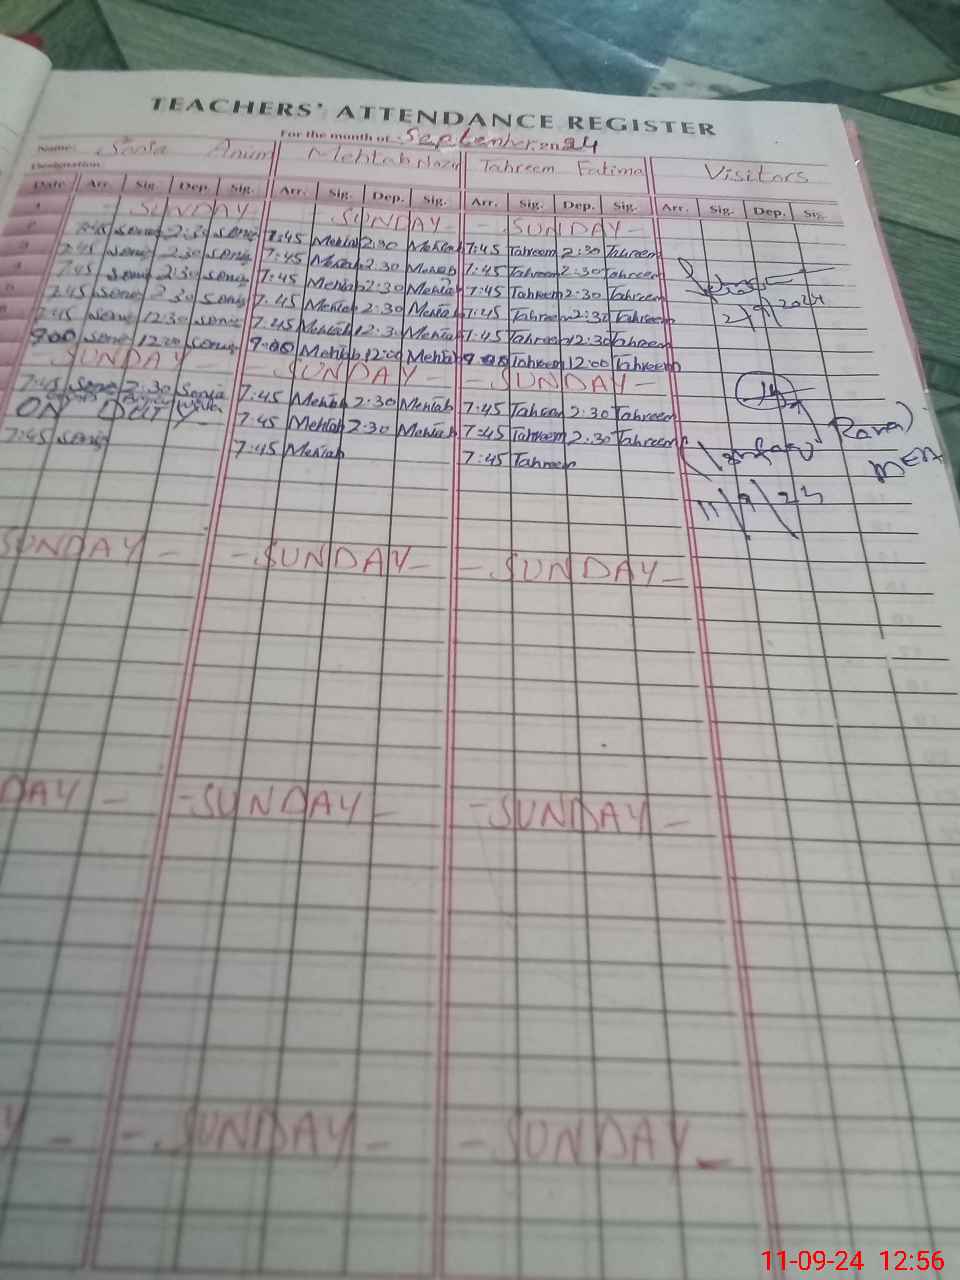 TEACHERS' ATTENDANCE REGISTER
For the month of September 2024
Name: Sonia Anum Mehtab Nazir Tahreem Fatima Visitors
Designation
Date Arr. Sig. Dep. Sig. Arr. Sig. Dep. Sig. Arr. Sig. Dep. Sig. Arr. Sig. Dep. Sig.
1 - SUNDAY - SUNDAY - - SUNDAY -
7:45 Sonia 2:30 Sonia 7:45 Mehtab 2:30 Mehtab 7:45 Tahreem 2:30 Tahreem
7:45 Sonia 2:30 Sonia 7:45 Mehtab 2:30 Mehtab 7:45 Tahreem 2:30 Tahreem
7:45 Sonia 2:30 Sonia 7:45 Mehtab 2:30 Mehtab 7:45 Tahreem 2:30 Tahreem
7:45 Sonia 2:30 Sonia 7:45 Mehtab 2:30 Mehtab 7:45 Tahreem 2:30 Tahreem
7:45 Sonia 12:30 Sonia 7:45 Mehtab 12:30 Mehtab 7:45 Tahreem 12:30 Tahreem
9:00 Sonia 12:00 Sonia 9:00 Mehtab 12:00 Mehtab 9:00 Tahreem 12:00 Tahreem
- SUNDAY - SUNDAY - - SUNDAY -
7:45 Sonia 2:30 Sonia 7:45 Mehtab 2:30 Mehtab 7:45 Tahreem 2:30 Tahreem
ON DUTY 7:45 Mehtab 2:30 Mehtab 7:45 Tahreem 2:30 Tahreem
7:45 Sonia 7:45 Mehtab 7:45 Tahreem
2/9/2024
Rana)
MEA
11/9/24
SUNDAY - - SUNDAY - - SUNDAY -
DAY - - SUNDAY - - SUNDAY -
Y - - SUNDAY - - SUNDAY -
11-09-24 12:56